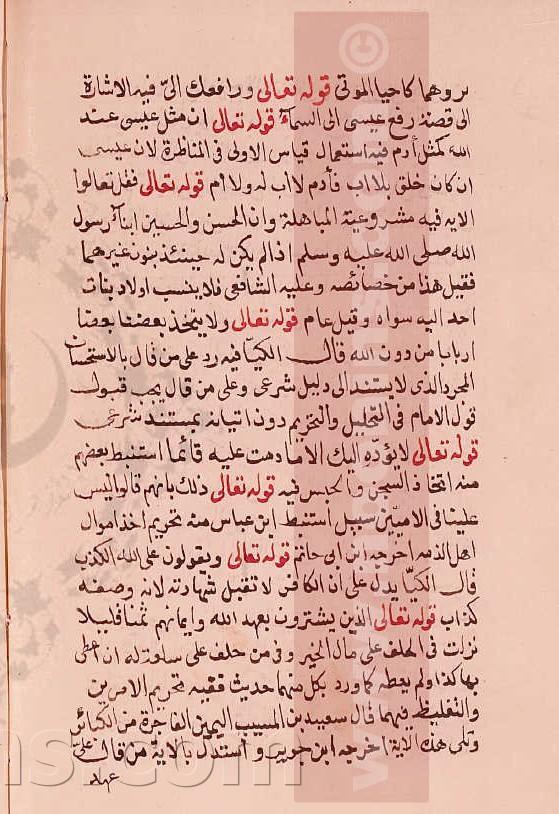 بروهما كاحيا الموتى قوله تعالى ورافعك الىّ فيه الاشارة
الى قصة رفع عيسى الى السماء قوله تعالى ان مثل عيسى عند
الله كمثل أدم فيه استعمال قياس الاولى فى المناظرة لان عيسى
ان كان خلق بلا اب فأدم لا اب له ولا ام قوله تعالى فقل تعالوا
الاية فيه مشروعية المباهلة وان الحسن والحسين ابنا رسول
الله صلى الله عليه وسلم اذ لم يكن له حينئذ بنون غيرهما
فقيل هذا من خصائصه وعليه الشافعى فلا ينسب اولاد بنات
احد اليه سواه وقيل عام قوله تعالى ولا يتخذ بعضنا بعضا
اربابا من دون الله قال الكيا فيه رد على من قال بالاستحسان
المجرد الذى لا يستند الى دليل شرعى وعلى من قال يجب قبول
قول الامام فى التحليل والتحريم دون اتيانه بمستند شرعى
قوله تعالى لا يؤده اليك الا ما دمت عليه قائما استنبط بعضهم
منه اتخاذ السجن والحبس فيه قوله تعالى ذلك بانهم قالوا ليس
علينا فى الاميّين سبيل استنبط ابن عباس منه تحريم اخذ اموال
اهل الذمه اخرجه ابن ابى حاتم قوله تعالى ويقولون على الله الكذب
قال الكيا يدل على ان الكافر لا تقبل شهادته لانه وصفه
كذاب قوله تعالى الذين يشترون بعهد الله وايمانهم ثمنا قليلا
نزلت فى الحلف على مال الخير وفى من حلف على سلعة له ان اعطى
بها كذا ولم يعطه كما ورد بكل منهما حديث ففيه تحريم الامرين
والتغليظ فيهما قال سعيد بن المسيب اليمين الفاجرة من الكبائر
وتلى هذه الاية اخرجه ابن جرير واستدل بالاية من قال على
عهد